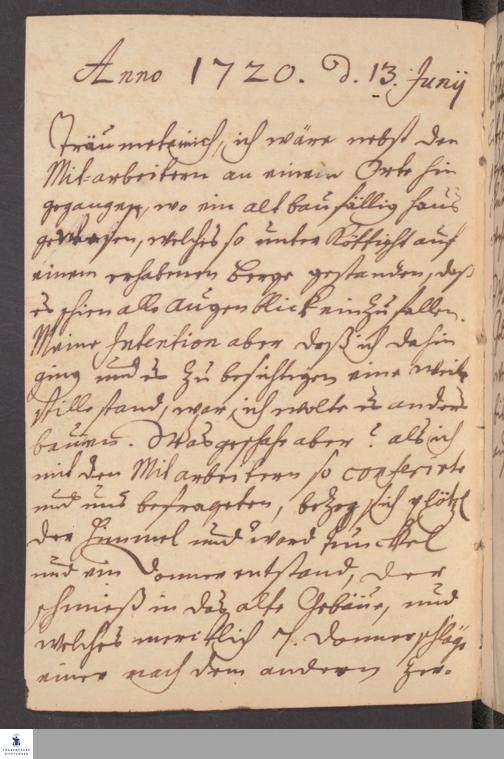 Anno 1720. d. 13. Junij
Träumete mich, ich wäre nebst den
Mit-arbeitern an einem Orte hin
gegangen, wo ein alt baufällig Haus
gewesen, welches so unter auf
einem erhabenen Berge gestanden, daß
es schien alle augenblick einzufallen.
Meine Intention aber daß ich dahin
ging und es zu besichtigen eine weile
stille stand, war, ich wolte es anders
bauen. Was geschahe aber? als ich
mit den Mitarbeitern so conferirte
und uns befrageten, bezog sich plötzl
der Himmel und ward dunckel
und ein Donner entstand, der
schmieß in das alte Gebäue, und
welches 7. Donnerschläge
einer nach dem andern zer-
FRANCKESCHE
STIFTUNGEN